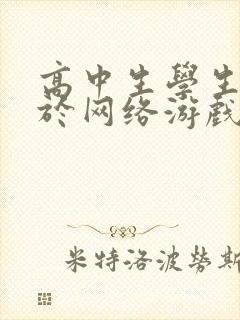 高中生學生
於网络游戲
米特洛波勞斯